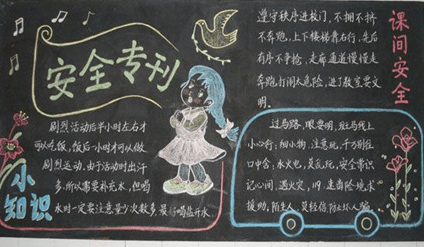 安全专刊
剧烈活动后半小时左右才
可以吃饭,饭后一小时才可以做
剧烈运动。由于活动时出汗
多,所以需要补充水,但喝
水时一定要注意量少次数多,最好喝盐开水
小
知识
课间安全
遵守秩序进校门,不拥不挤
不奔跑,上下楼梯靠右行,先后
有序不争抢,走廊通道慢慢走
奔跑打闹太危险,进了教室要文
明。
过马路,眼要明,斑马线上
小心行;细小物,注意玩,千万别往
口中含;水火电,莫乱玩,安全常识
记心间;遇火灾,119,走离险境求
援助,陌生人,莫轻信防止坏人骗。